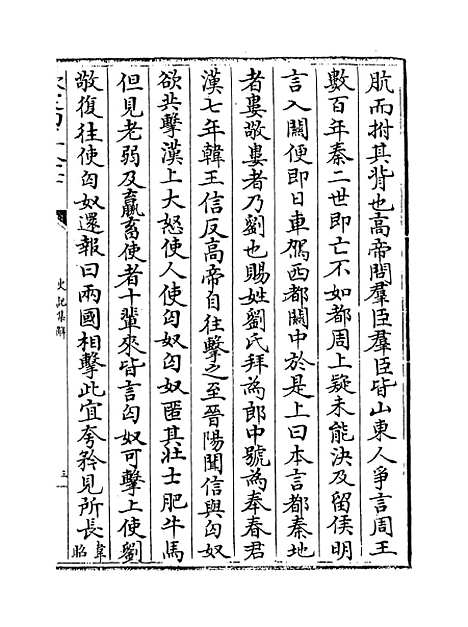 肮而拊其背也高帝問羣臣羣臣皆山東人爭言周王
數百年秦二世即亡不如都周上疑未能決及留侯明
言入關便即日車駕西都關中於是上曰本言都秦地
者婁敬婁者乃劉也賜姓劉氏拜為郎中號為奉春君
漢七年韓王信反高帝自往擊之至晉陽聞信與匈奴
欲共擊漢上大怒使人使匈奴匈奴匿其壯士肥牛馬
但見老弱及羸畜使者十輩來皆言匈奴可擊上使劉
敬復往使匈奴還報曰兩國相擊此宜夸矜見所長韋昭
史記集解
三